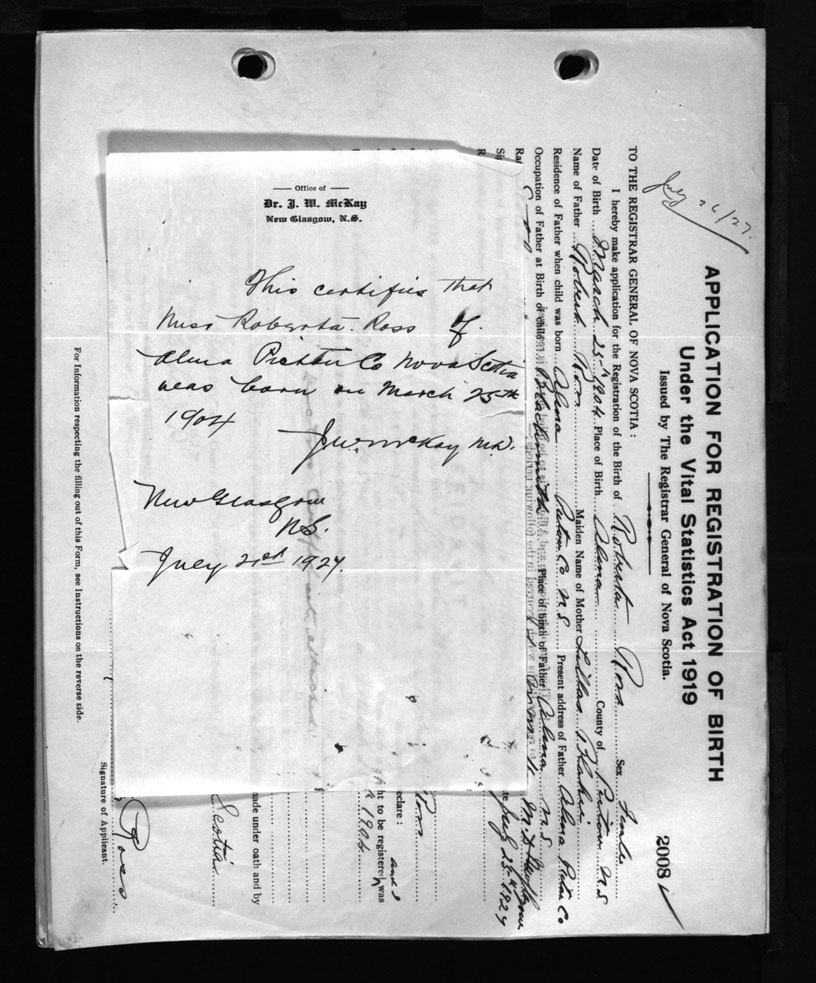 Office of
Dr. J. W. McKay
New Glasgow, N.S.
This certifies that
Miss Roberta Ross of
Alma Pictou Co Nova Scotia
was born on March 25th
1904
J.W. McKay M.D.
New Glasgow
N.S.
July 21st 1927
July 26/27.
APPLICATION FOR REGISTRATION OF BIRTH
Under the Vital Statistics Act 1919
Issued by The Registrar General of Nova Scotia.
2008
TO THE REGISTRAR GENERAL OF NOVA SCOTIA:
I hereby make application for the Registration of the Birth of Roberta Ross Sex Female
Date of Birth March 25th 1904 Place of Birth Alma County of Pictou N.S
Name of Father Robert Ross Maiden Name of Mother
Residence of Father when child was born Alma Pictou Co N.S. Present address of Father Alma Pictou Co
Occupation of Father at Birth of child Blacksmith Place of birth of Father Alma N.S
July 25th 1927
Ross
eclare: and I
ht to be registered was
1904
made under oath and by
Scotia
Ross
Signature of Applicant.
For Information respecting the filling out of this Form, see Instructions on the reverse side.